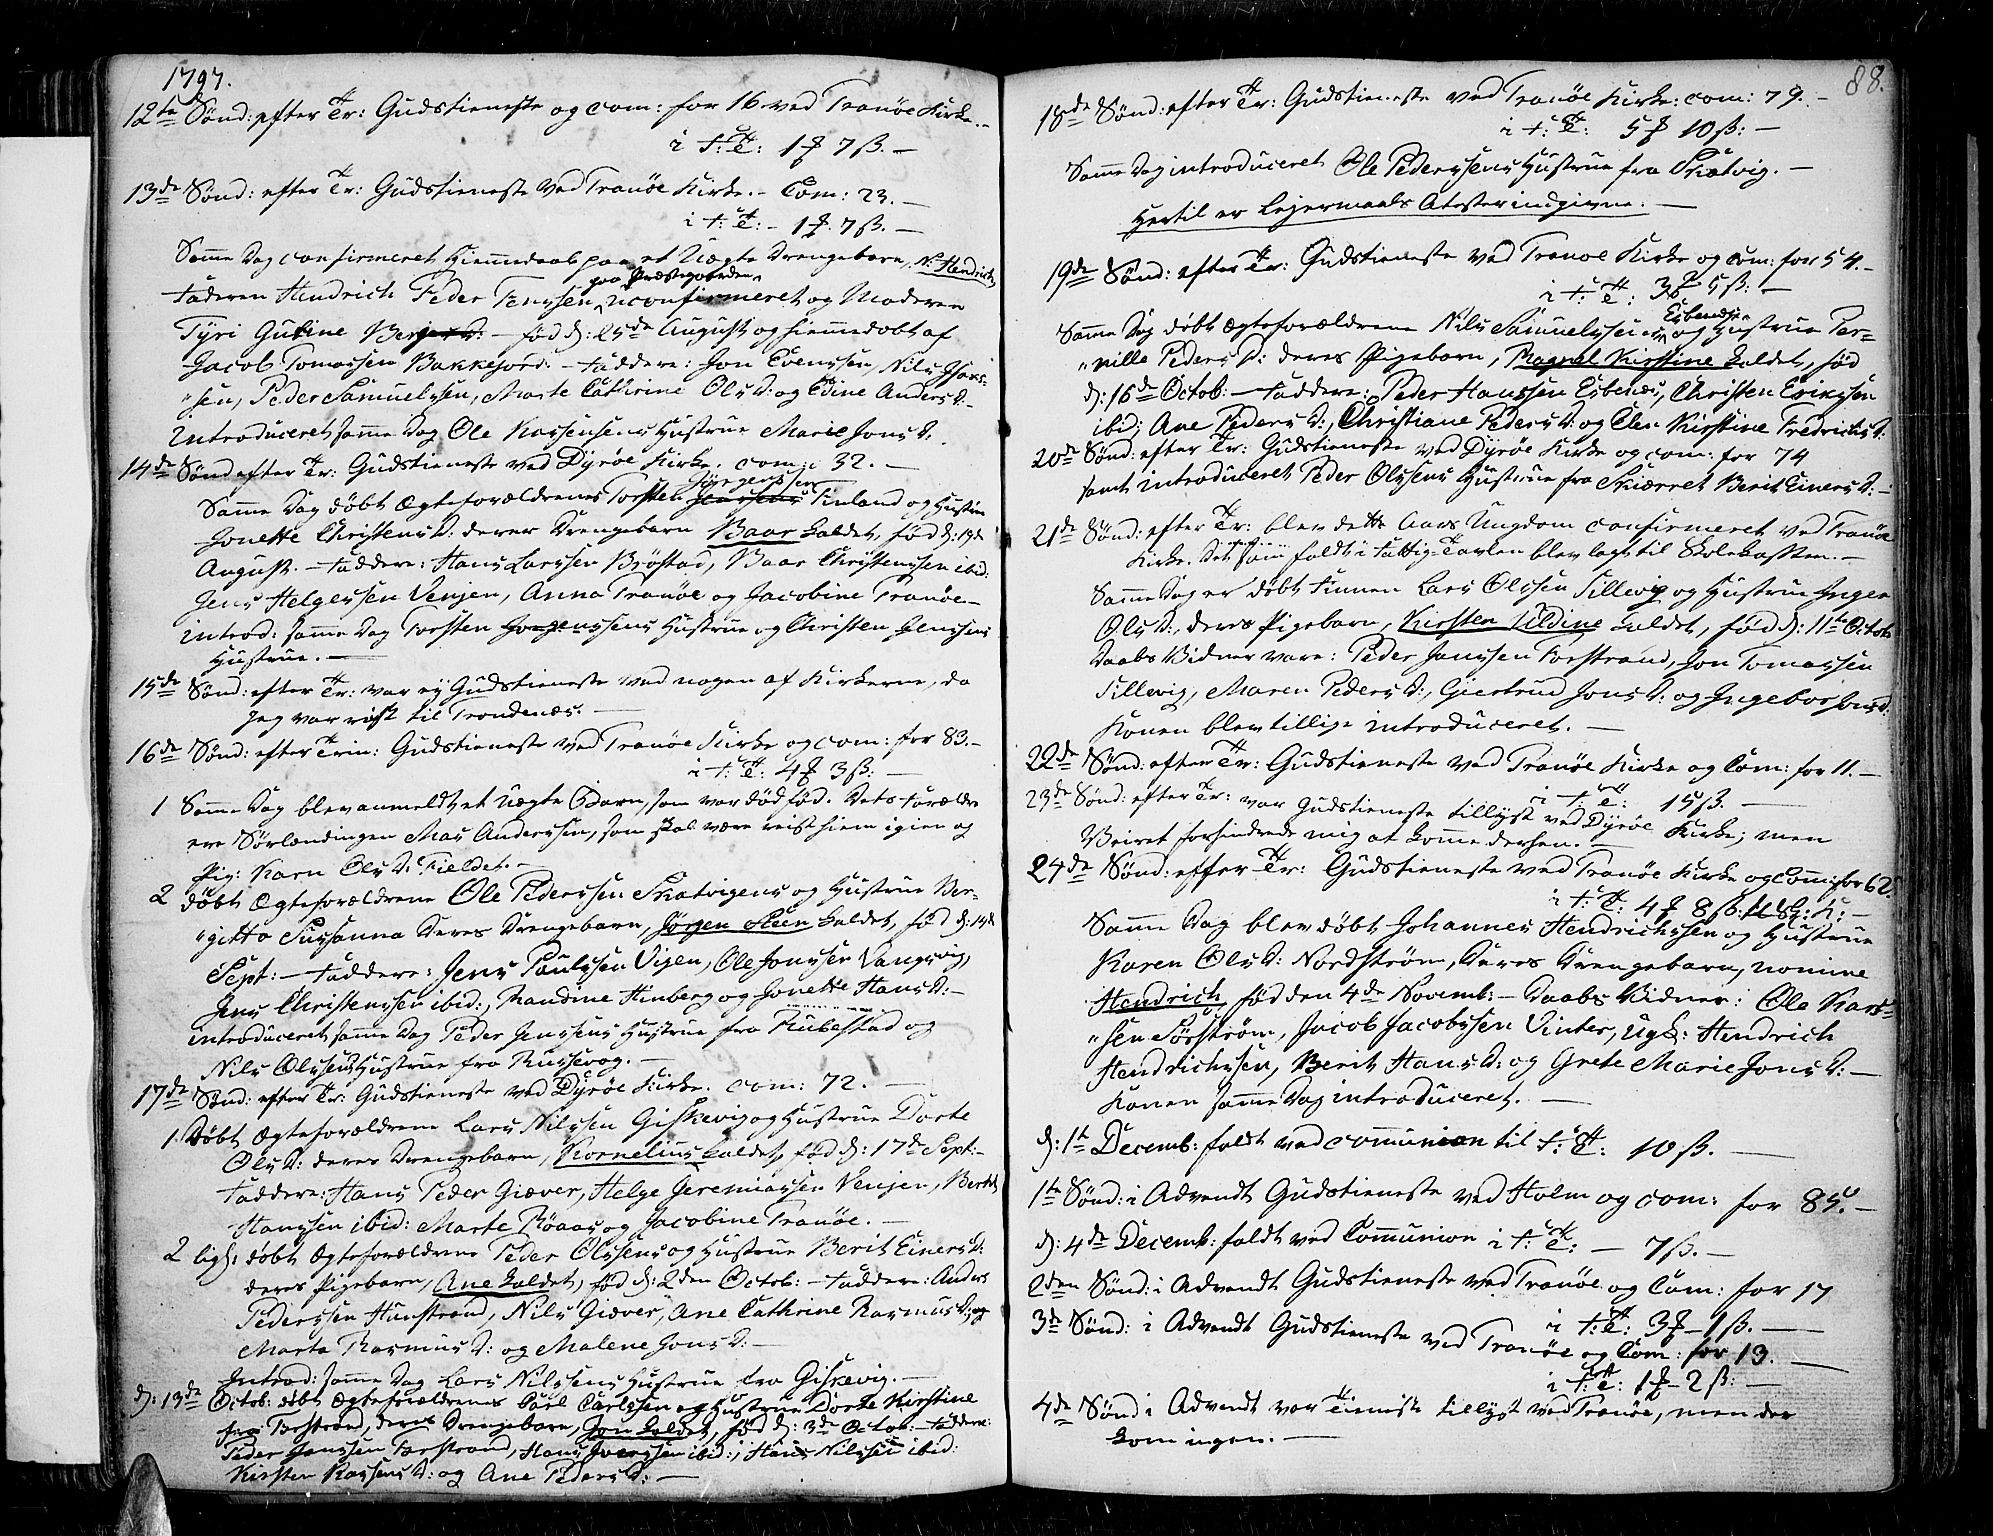 1797.
12te Sønd: efter Tr: Gudstieneste og com: for 16 ved Tranøe Kirke. -
i t: T: 1 7 ß. -
13de Sønd: efter Tr: Gudstieneste ved Tranøe Kirke. - Com: 23. -
i t: T: - 1 7 ß. -
Samme Dag confirmeret Hiemmedaab paa et Uægte Drengebarn, N: Hendrich
paa Præstegaarden
Faderen Hendrich Peder uconfirmeret og Moderen
Tyri Guline - fød d: 25de August og hiemmedøbt af
Jacob Tomassen Bakkejord: - Faddere: Jon Evenssen, Nils
sen, Peder Samuelssen, Marte Cathrine Ols D: og Edine Anders D: -
Introduceret samme Dag Ole Hustrue Marie Jons D:
14de Sønd efter Tr: Gudstieneste ved Dyrøe Kirke. com: 32. -
Jørgenssen
Samme Dag døbt Ægteforældrenes Torsten Finland og Hustrue
Jonette Christens D: deres Drengebarn Baar kaldet, fød d: 19de
August. - Faddere: Hans Larssen Brøstad, Baar Christenssen ibid:
Jens Helgessen Venjen, Anna Tranøe og Jacobine Tranøe -
introd: samme Dag Torsten Jørgenssens Hustrue og Christen Jenssens
Hustrue. -
15de Sønd: efter Tr: var ej Gudstieneste ved nogen af Kirkerne, da
jeg var reist til Trondenæs. -
16de Sønd: efter Trin: Gudstieneste ved Tranøe Kirke og com: for 83. -
i t: T: 4 3 ß: -
1 Samme Dag blev anmeldt et Uægte Barn, som var død fød. Dets Forældre
ere Sørlændingen Mas Anderssen, som skal være reist hiem igien og
Pig: Karn Ols D: Fieldet. -
2 døbt Ægteforældrene Ole Pederssen Skatvigens og Hustrue Ber-
"gitta Susanna deres Drengebarn, Jørgen Steen kaldet, fød d: 14de
Sept: - Faddere: Jens Poulssen Vigen, Ole Jonssen Vangsvig,
Jens Christenssen ibid:, Randine Hinberg og Jonette Hans D: -
introduceret samme Dag Peder Jenssens Hustrue fra Rubestad og
Nils Olssens Hustrue fra Russevog. -
17de Sønd: efter Tr: Gudstieneste ved Dyrøe Kirke. com: 72. -
1. Døbt Ægteforældrene Lars Nilssen Giskevig og Hustrue Dorte
Ols D: deres Drengebarn, Kornelius kaldet, fød d: 17de Sept: -
Faddere: Hans Peder Giæver, Helge Jeremiassen Venjen, Bertel
Hanssen ibid: Marte Røaas og Jacobine Tranøe. -
2 lig: døbt Ægteforældrene Peder Olssens og Hustrue Berit Einers D:
deres Pigebarn, Ane kaldet, fød d: 2den Octob: - Faddere: Anders
Pederssen Hunstrand, Nils Giæver, Ane Cathrine Rasmus D: og
Marta Rasmus D: og Malene Jons D: -
Introd: samme Dag Lars Nilssens Hustrue fra Giskevig. -
d: 13de Octob: døbt Ægteforældrenes Carl Carlssen og Hustrue Dorte Kirstine
fra Forstrand, deres Drengebarn, Jon kaldet, fød d: 3de Octob: - Faddere:
Peder Janssen Forstrand, Hans Iverssen ibid:, Hans Nilssen ibid:
Kirsten D: og Ane Peders D: -
88.
18de Sønd: efter Tr: Gudstieneste ved Tranøe Kirke: com: 79. -
i t: T: 5 10 ß: -
Samme Dag introduceret Ole Pederssens Hustrue fra Skatvig. -
Hertil er Lejermaals Atester indgivne. -
19de Sønd: efter Tr: Gudstieneste ved Tranøe Kirke og com: for 54. -
i t: T: 3 5 ß: -
Samme Dag døbt Ægteforældrene Nils Samuelssen og Hustrue Per=
"nille Peders D: deres Pigebarn, Magnel Kirstine kaldet, fød
d: 16de Octob: - Faddere: Peder Hanssen Esbenæs, Christen Erikssen
ibid; Ane Peders D:, Christiane Peders D: og Elen Kirstine Fredrichs D:
20de Sønd: efter Tr: Gudstieneste ved Dyrøe Kirke og com: for 74
samt introduceret Peder Olssens Hustrue fra Skiærret Berit Einers D: -
21de Sønd: efter Tr: blev dette Aars Ungdom confirmeret ved Tranøe
Kirke. Det som faldt i Fattig-Tavlen blev lagt til Skolekassen. -
Samme Dag er døbt Finnen Lars Olssen Sillevig og Hustrue Inger
Ols D:, deres Pigebarn, Kirsten Uldine kaldet, fød d: 11te Octob:
Daabs Vidner vare: Peder Janssen Forstrand, Jon Tomassen
Sillevig, Maren Peders D:, Giertrud Jons D: og Ingebor Jons D:
Konen blev tillige introduceret. -
22de Sønd: efter Tr: Gudstieneste ved Tranøe Kirke og Com: for 11. -
i t: T: 15 ß. -
23de Sønd: efter Tr: var Gudstieneste tillyst ved Dyrøe Kirke; men
Veiret forhindrede mig at komme derhen. -
24de Sønd: efter Tr: Gudstieneste ved Tranøe Kirke og Com: for 62.
i t: T: 4 8 ß:
Samme Dag blev døbt Johannes Hendrichssen og Hustrue
Karen Ols D: Nordstrøm, deres Drengebarn, nomine
Hendrich, fød den 4de Novemb: - Daabs Vidner: Ole Kars-
"sen Sørstrøm, Jacob Jacobssen Vinter, Ugk: Hendrich
Hendrichssen, Berit Hans D: og Grete Marie Jons D: -
Konen samme Dag introduceret. -
d: 1te Decemb: faldt ved communion til t: T: 10 ß. -
1te Sønd: i Advendt Gudstieneste ved Holm og com: for 85. -
d: 4de Decemb: faldt ved Communion i t: T: - 7 ß. -
2den Sønd: i Advendt Gudstieneste ved Tranøe og Com: for 17
i t: T: 3 - 1 ß. -
3de Sønd: i Advendt Gudstieneste ved Tranøe og Com: for 13. -
i t: T: 1 - 2 ß: -
4de Sønd i Advendt var Tieneste tillyst ved Tranøe, men der
kom ingen. -